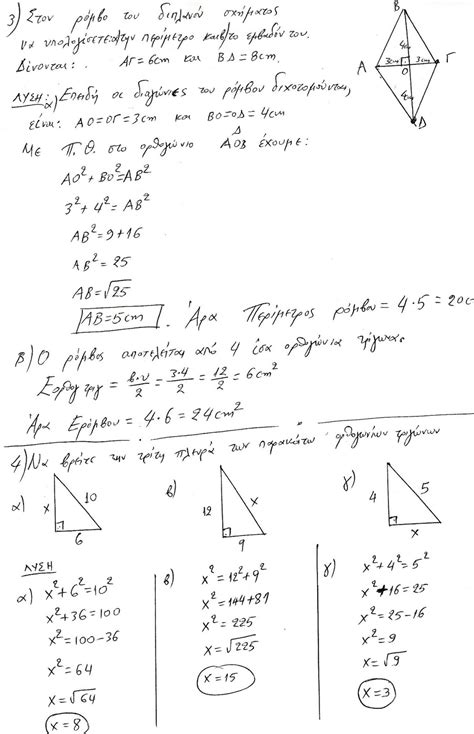 3) Στον ρόμβο του διπλανού σχήματος
να υπολογίσετε την περίμετρο και το εμβαδόν του.
Δίνονται: ΑΓ=6cm και ΒΔ=8cm.
ΛΥΣΗ: α) Επειδή οι διαγώνιες του ρόμβου διχοτομούνται,
είναι: ΑΟ=ΟΓ=3cm και ΒΟ=ΟΔ=4cm
Με Π.Θ. στο ορθογώνιο ΑΟΒ έχουμε:
ΑΟ²+ΒΟ²=ΑΒ²
3²+4²=ΑΒ²
ΑΒ²=9+16
ΑΒ²=25
ΑΒ=√25
ΑΒ=5cm. Άρα Περίμετρος ρόμβου=4·5=20c
Β
4cm
Α 3cm 3cm Γ
Ο
4cm
Δ
β) Ο ρόμβος αποτελείται από 4 ίσα ορθογώνια τρίγωνα.
Εορθογ τριγ = β·υ/2 = 3·4/2 = 12/2 = 6cm²
Άρα Ερόμβου = 4·6=24cm²
4) Να βρείτε την τρίτη πλευρά των παρακάτω ορθογωνίων τριγώνων
α) x 10 6
β) 12 x 9
γ) 4 5 x
ΛΥΣΗ
α) x²+6²=10²
x²+36=100
x²=100-36
x²=64
x=√64
x=8
β) x²=12²+9²
x²=144+81
x²=225
x=√225
x=15
γ) x²+4²=5²
x²+16=25
x²=25-16
x²=9
x=√9
x=3